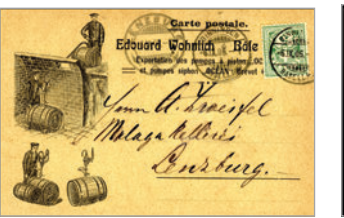 Carte postale.
Edouard Wohnlich Bâle
Exportation des pompes à pistons
et pompes siphon OCÉAN Brevet
GENÈVE
Herrn A. Zweifel
Malaga Kellerei
Lenzburg.